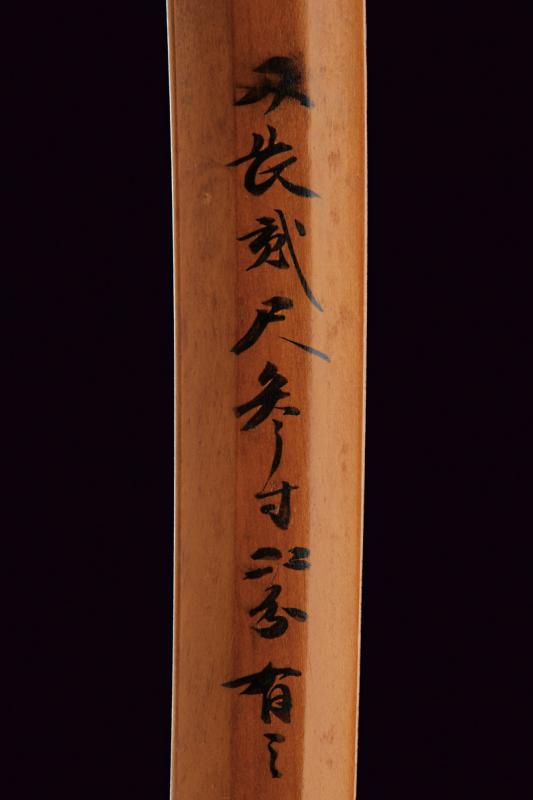 刃長貳尺参寸分有之